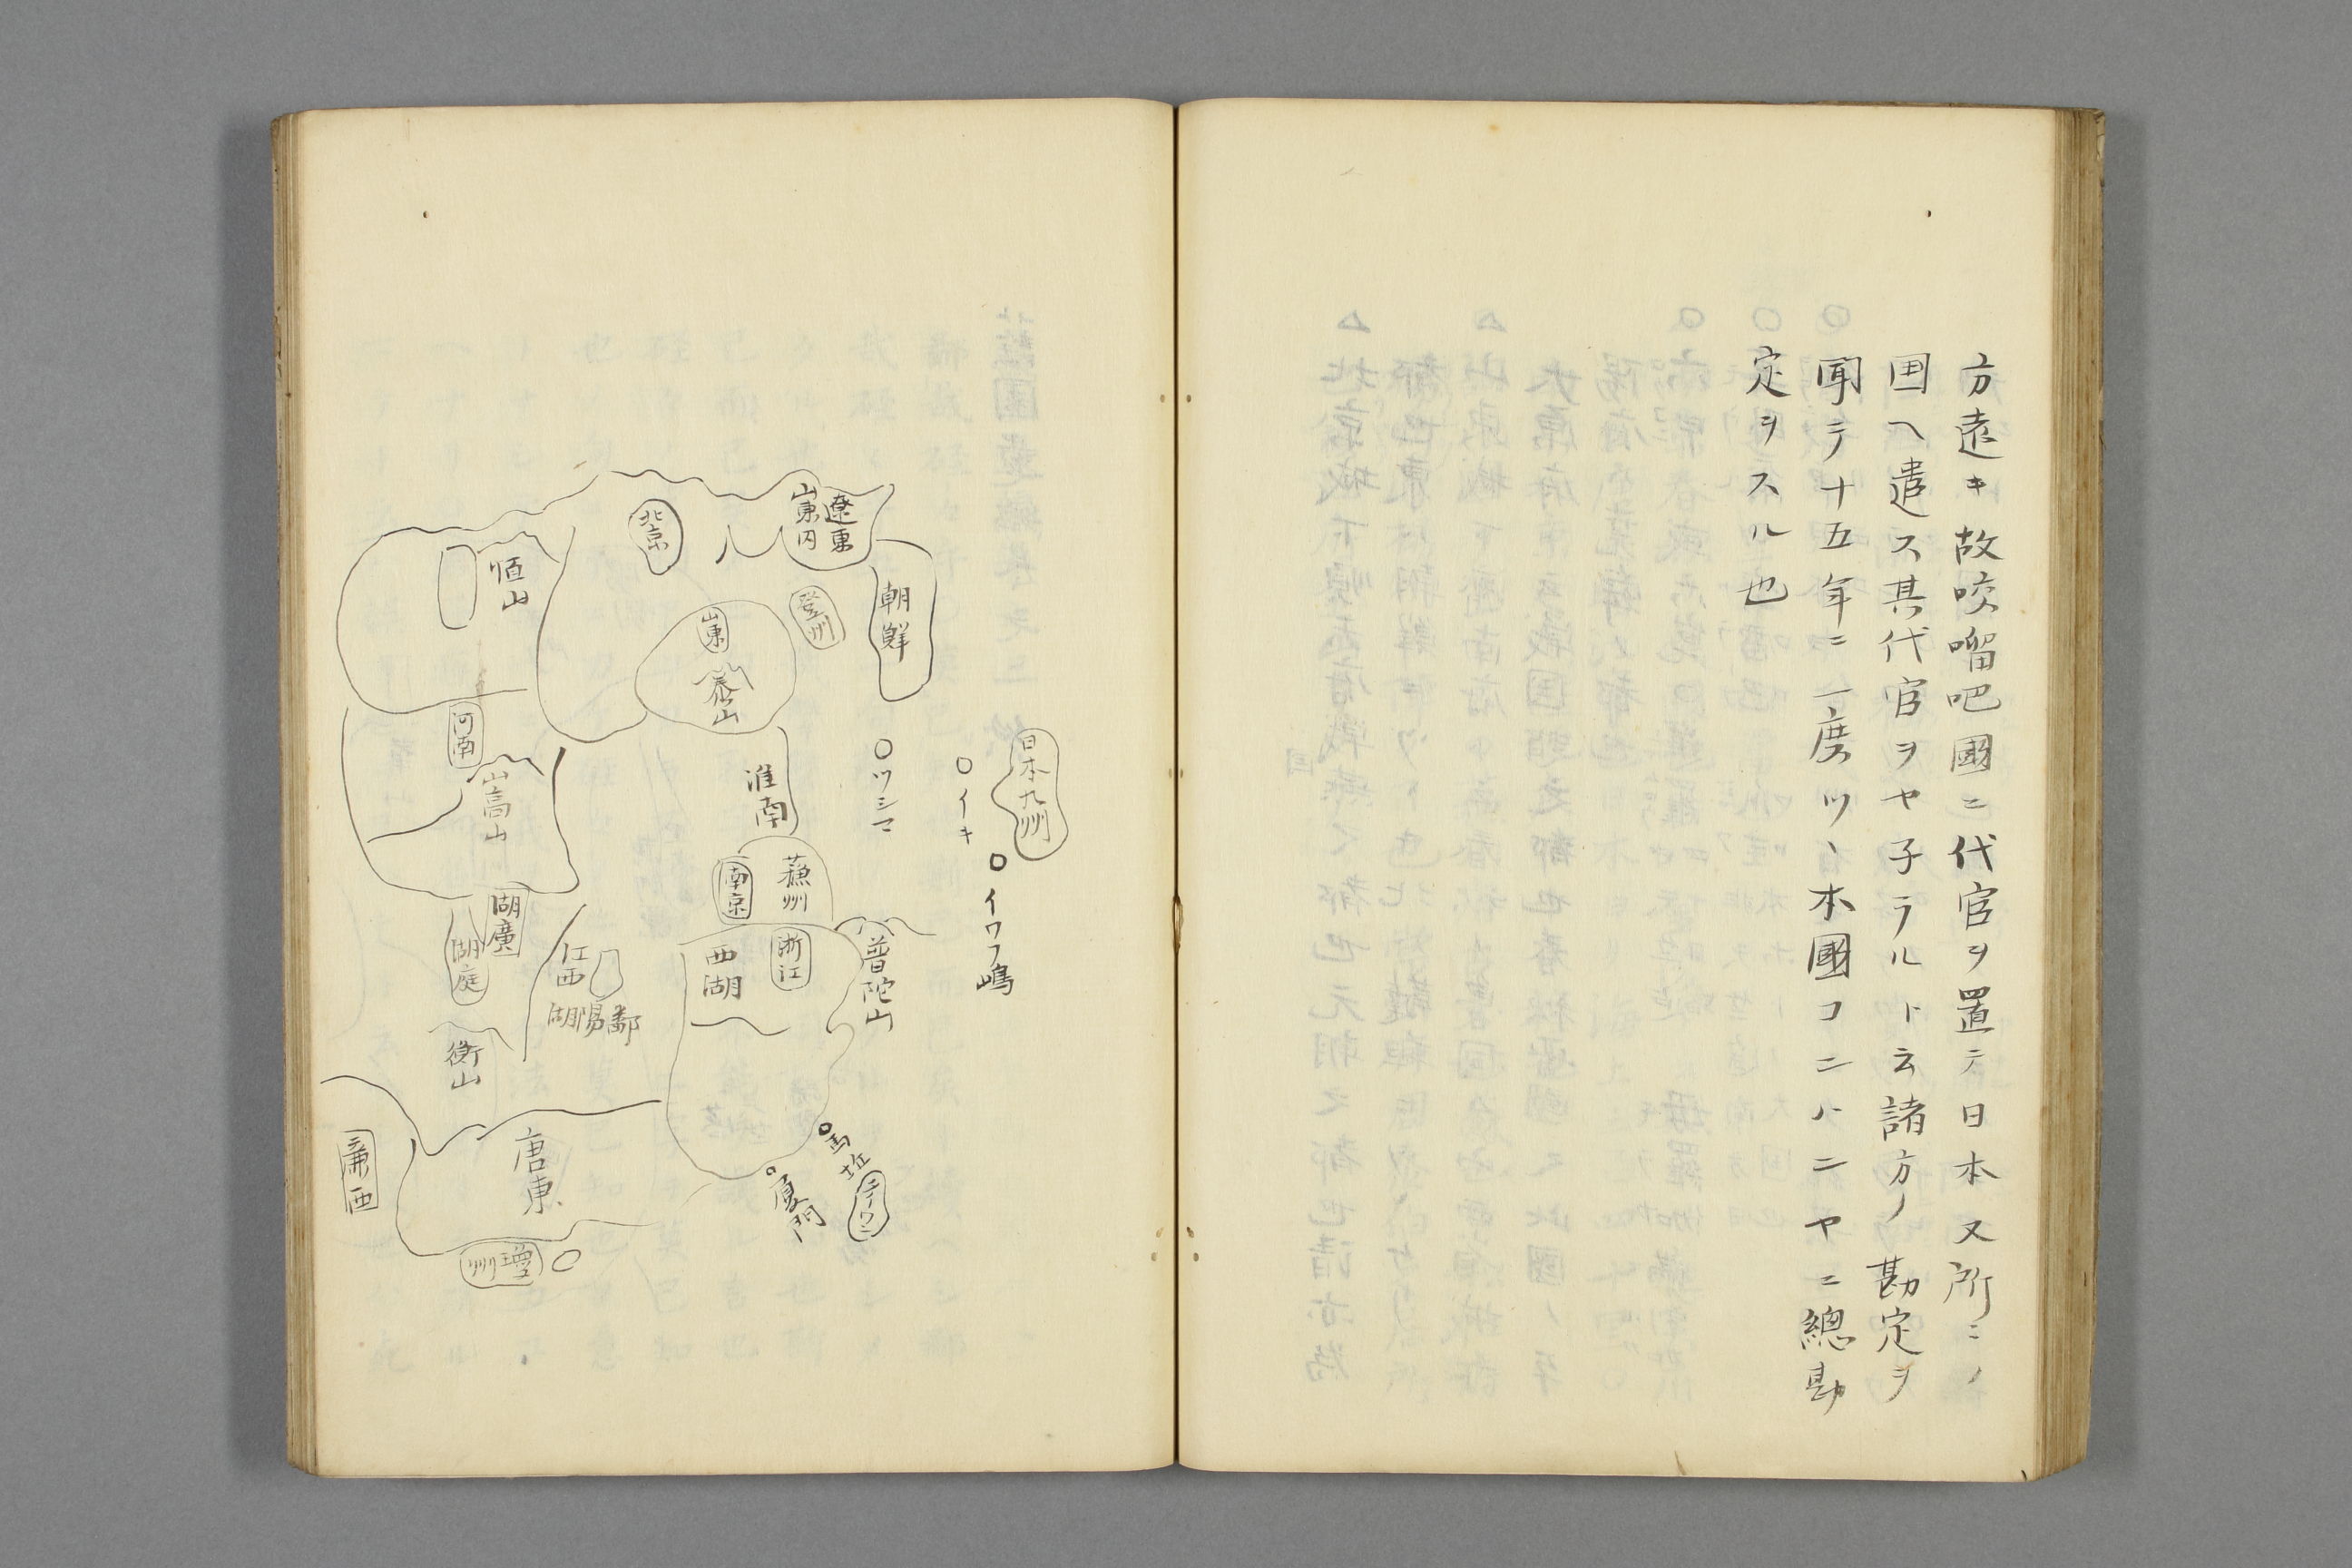 方遠キ故咬𠺕吧國ニ代官ヲ置テ日本又所ニノ
囯ヘ遣ス其代官ヲヤ子ラルト云諸方ノ勘定ヲ
聞テ十五年ニ一度ツヽ本國コンハニヤニ總勘
定ヲスル也
日本九州
イキ
イワフ嶋
ツシマ
朝鮮
遼東
山東内
登州
北京
山東
泰山
恒山
河南
嵩山
淮南
蘓州
南京
浙江
西湖
普陀山
湖廣
洞庭
江西
鄱陽湖
衡山
唐東
瓊州
厦門